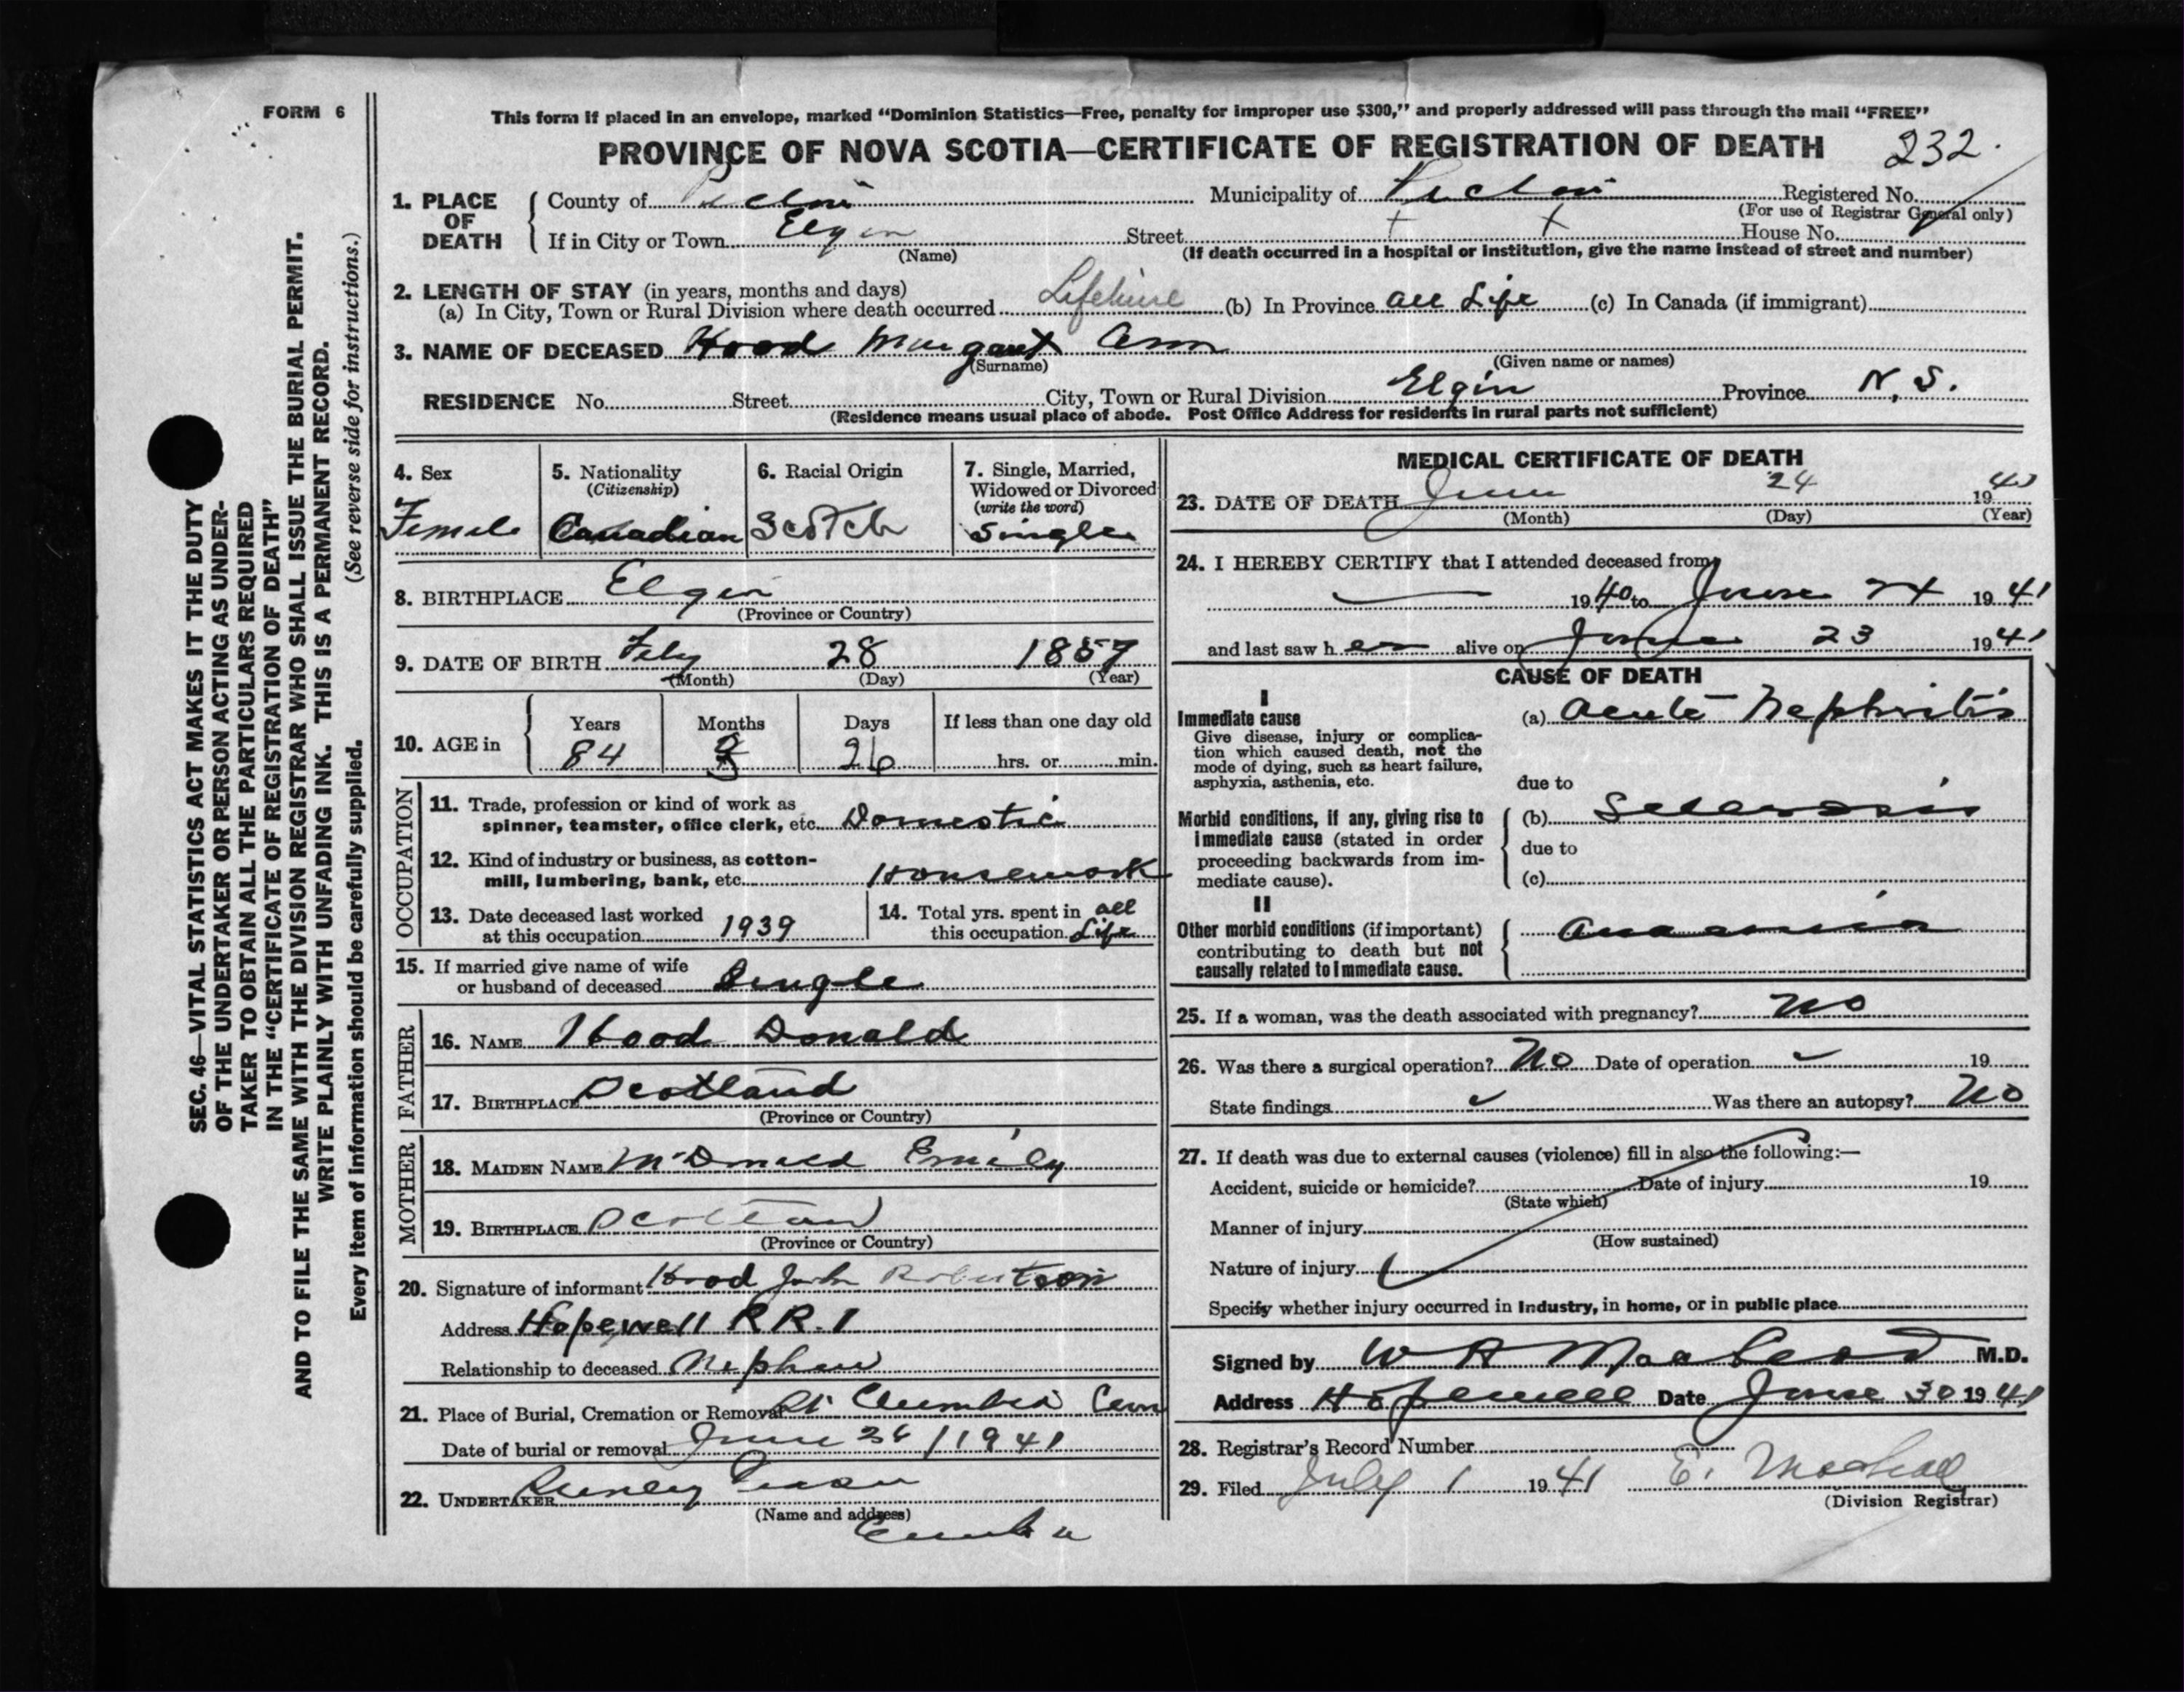 FORM 6
This form if placed in an envelope, marked "Dominion Statistics—Free, penalty for improper use $300," and properly addressed will pass through the mail "FREE"
PROVINCE OF NOVA SCOTIA—CERTIFICATE OF REGISTRATION OF DEATH 232.
1. PLACE OF DEATH
County of Pictou Municipality of Pictou Registered No.
(For use of Registrar General only)
If in City or Town Elgin Street House No.
(Name) (If death occurred in a hospital or institution, give the name instead of street and number)
2. LENGTH OF STAY (in years, months and days)
(a) In City, Town or Rural Division where death occurred Lifetime (b) In Province all Life (c) In Canada (if immigrant)
3. NAME OF DECEASED Hood Margaret Ann
(Surname) (Given name or names)
RESIDENCE No. Street City, Town or Rural Division Elgin Province N.S.
(Residence means usual place of abode. Post Office Address for residents in rural parts not sufficient)
4. Sex
Female
5. Nationality
(Citizenship)
Canadian
6. Racial Origin
Scotch
7. Single, Married,
Widowed or Divorced
(write the word)
Single
8. BIRTHPLACE Elgin
(Province or Country)
9. DATE OF BIRTH Feby 28 1857
(Month) (Day) (Year)
10. AGE in
Years Months Days If less than one day old
84 3 26 hrs. or min.
OCCUPATION
11. Trade, profession or kind of work as
spinner, teamster, office clerk, etc. Domestic
12. Kind of industry or business, as cotton-
mill, lumbering, bank, etc. Housework
13. Date deceased last worked
at this occupation 1939
14. Total yrs. spent in all
this occupation. Life
15. If married give name of wife
or husband of deceased Single
FATHER
16. NAME Hood Donald
17. BIRTHPLACE Scotland
(Province or Country)
MOTHER
18. MAIDEN NAME McDonald Emily
19. BIRTHPLACE Scotland
(Province or Country)
20. Signature of informant Hood John Robertson
Address Hopewell R R. 1
Relationship to deceased Nephew
21. Place of Burial, Cremation or Removal St Columba Cem
Date of burial or removal June 26/1941
22. UNDERTAKER
(Name and address)
MEDICAL CERTIFICATE OF DEATH
23. DATE OF DEATH June 24 1941
(Month) (Day) (Year)
24. I HEREBY CERTIFY that I attended deceased from
1940 to June 24 1941
and last saw her alive on June 23 1941
CAUSE OF DEATH
I
Immediate cause
Give disease, injury or complica-
tion which caused death, not the
mode of dying, such as heart failure,
asphyxia, asthenia, etc.
(a) Acute Nephritis
due to
Morbid conditions, if any, giving rise to
immediate cause (stated in order
proceeding backwards from im-
mediate cause).
(b) Sclerosis
due to
(c)
II
Other morbid conditions (if important)
contributing to death but not
causally related to immediate cause.
Anaemia
25. If a woman, was the death associated with pregnancy? No
26. Was there a surgical operation? No Date of operation 19
State findings Was there an autopsy? No
27. If death was due to external causes (violence) fill in also the following:—
Accident, suicide or homicide? Date of injury 19
(State which)
Manner of injury
(How sustained)
Nature of injury
Specify whether injury occurred in industry, in home, or in public place
Signed by W A MacLeod M.D.
Address Hopewell Date June 30 1941
28. Registrar's Record Number
29. Filed July 1 1941 E.
(Division Registrar)
SEC. 46—VITAL STATISTICS ACT MAKES IT THE DUTY
OF THE UNDERTAKER OR PERSON ACTING AS UNDER-
TAKER TO OBTAIN ALL THE PARTICULARS REQUIRED
IN THE "CERTIFICATE OF REGISTRATION OF DEATH"
AND TO FILE THE SAME WITH THE DIVISION REGISTRAR WHO SHALL ISSUE THE BURIAL PERMIT.
WRITE PLAINLY WITH UNFADING INK. THIS IS A PERMANENT RECORD.
Every item of information should be carefully supplied. (See reverse side for instructions.)